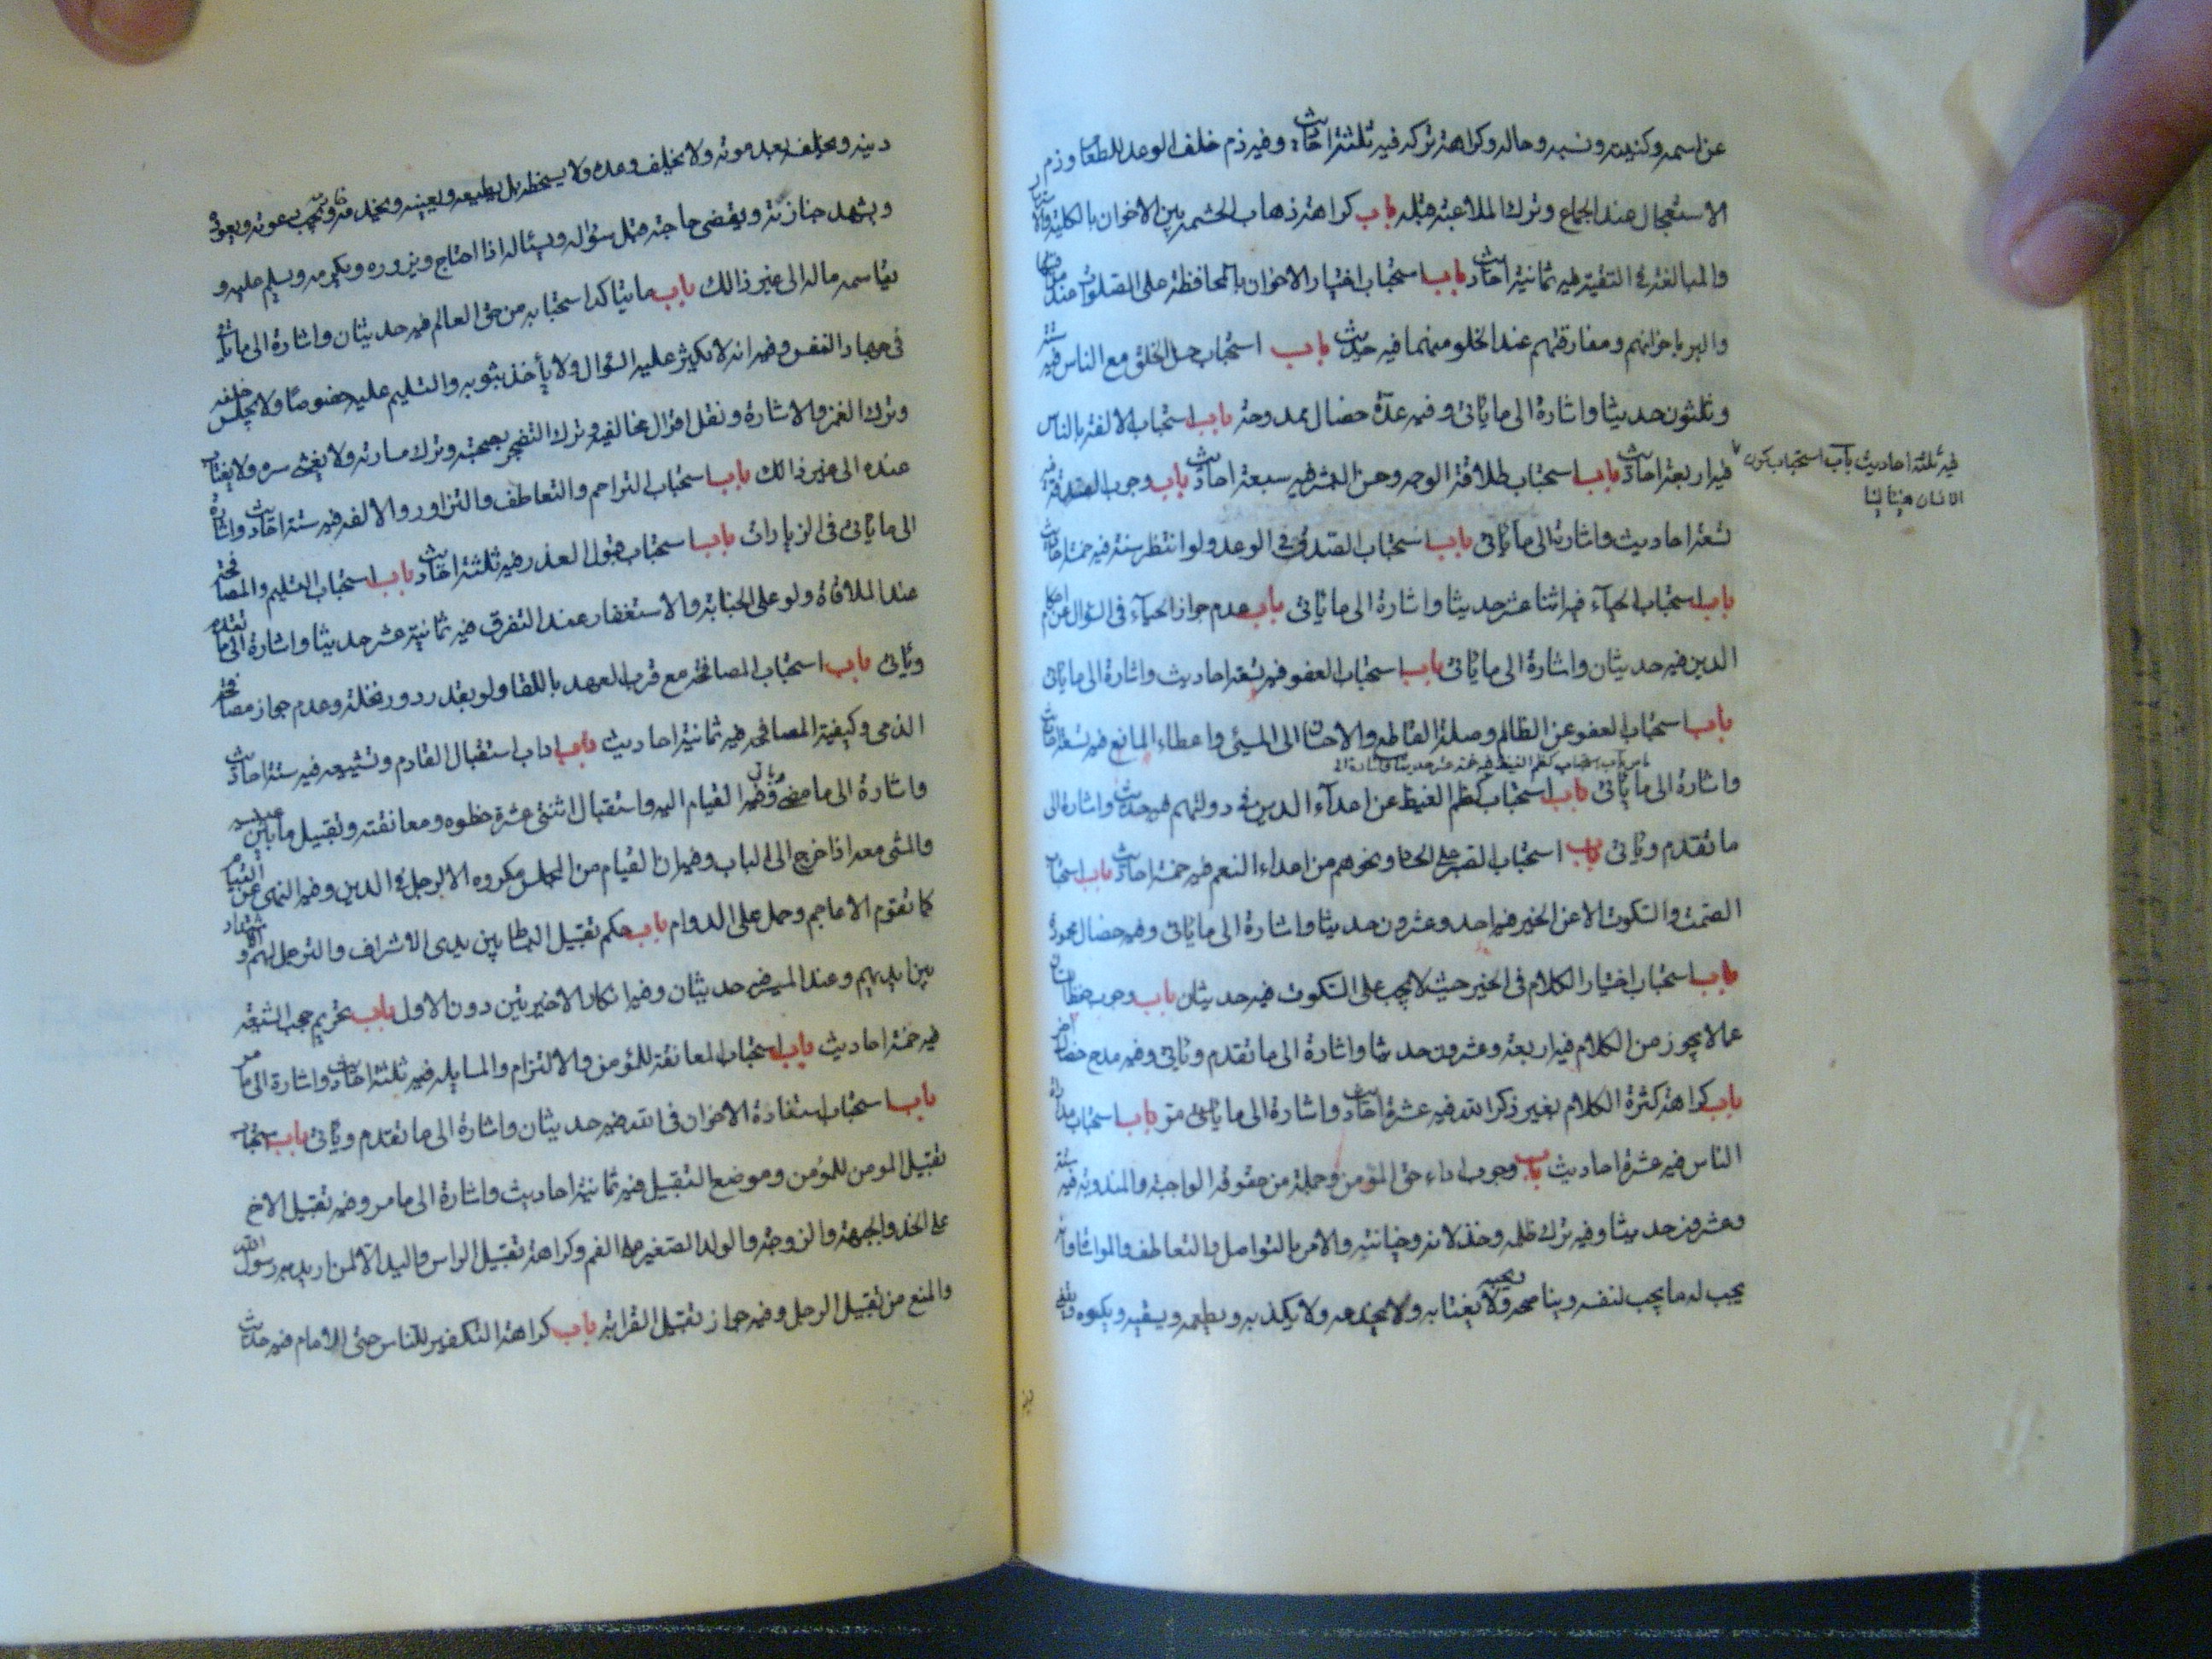 عن اسمه وكنيته ونسبه وحاله وكراهة تركه فيه ثلثة احاديث وفيه ذم خلف الوعد للطعام وذم
الاستعجال عند الجماع وترك الملاعبة قبله باب كراهة ذهاب الحشمة بين الاخوان بالكلية والاسترسال
والمبالغة في الثقة فيه ثمانية احاديث باب استحباب اختبار الاخوان بالمحافظة على الصلوات عند مواقيتها
والبر باخوانهم ومفارقتهم عند الخلو منهما فيه حديث باب استحباب حسن الخلق مع الناس فيه ستة
وثلثون حديثا واشارة الى ما ياتى وفيه عدة خصال ممدوحة باب استحباب الالفة بالناس
فيه ثلثة احاديث باب استحباب كون
الانسان هينا لينا
فيه اربعة احاديث باب استحباب طلاقة الوجه وحسن البشر فيه سبعة احاديث باب وجوب الصدق فيه
تسعة احاديث واشارة الى ما ياتى باب استحباب الصدق في الوعد ولو انتظر سنة فيه خمسة احاديث
باب استحباب الحيآء فيه اثنا عشر حديثا واشارة الى ما ياتى باب عدم جواز الحيآء في السؤال عن احكام
الدين فيه حديثان واشارة الى ما ياتى باب استحباب العفو فيه تسعة احاديث واشارة الى ما ياتى
باب استحباب العفو عن الظالم وصلة القاطع والاحسان الى المسيئ واعطاء المانع فيه تسعة احاديث
باب استحباب كظم الغيظ فيه خمسة عشر حديثا واشارة الى
واشارة الى ما ياتى باب استحباب كظم الغيظ عن اعدآء الدين في دولتهم فيه حديث واشارة الى
ما تقدم وياتى باب استحباب الصبر على الحساد ونحوهم من اعداء النعم فيه خمسة احاديث باب استحباب
الصمت والسكوت الا عن الخير فيه احد وعشرون حديثا واشارة الى ما ياتى وفيه خصال محمودة
باب استحباب اختيار الكلام في الخير حيث لا يجب على السكوت فيه حديثان باب وجوب حفظ اللسان
عما لا يجوز من الكلام فيه اربعة وعشرون حديثا واشارة الى ما تقدم وياتى وفيه مدح خصال اخر
باب كراهة كثرة الكلام بغير ذكر الله فيه عشرة احاديث واشارة الى ما ياتى باب استحباب مداراة
الناس فيه عشرة احاديث باب وجوب اداء حق المؤمن وجملة من حقوقه الواجبة والمندوبة فيه ستة
وعشرون حديثا وفيه ترك ظلمه وخذلانه وخيانته والامر بالتواصل والتعاطف والمواساة وان
يحب له ما يحب لنفسه ويناصحه ويجيبه ولا يغتابه ولا يخدعه ولا يكذبه ويطعمه ويسقيه ويكسوه
دينه ويخلفه بعد موته ولا يخلف وعده ولا يسخطه بل يطيعه ويعينه
ويشهد جنازته ويقضى حاجته قبل سؤاله ويسئاله اذا احتاج ويزوره ويكرمه ويسلم عليه و
يقاسمه ماله الى غير ذالك باب ما يتاكد استحبابه من حق العالم فيه حديثان واشارة الى ما ياتى
في جهاد النفس وفيه انه لا يكثر عليه السؤال ولا يأخذ بثوبه والتسليم عليه خصوصا ولا يجلس خلفه
وترك الغمز والاشارة ونقل اقوال مخالفيه وترك التضجر بصحبته وترك مسارته ولا يفشي سره ولا يغتاب
عنده الى غير ذالك باب استحباب التراحم والتعاطف والتزاور والالفه فيه ستة احاديث واشارة
الى ما ياتى في الزيارات باب استحباب قبول العذر فيه ثلثة احاديث باب استحباب التسليم والمصافحة
عند الملاقاة ولو على الجنابة والاستغفار عند التفرق فيه ثمانية عشر حديثا واشارة الى ما تقدم
وياتى باب استحباب المصافحة مع قرب العهد باللقا ولو بقدر دور نخلة وعدم جواز مصافحة
الذمى وكيفية المصافحة فيه ثمانية احاديث باب اداب استقبال القادم وتشييعه فيه ستة احاديث
واشارة الى ما مضى وياتى وفيه القيام اليه واستقبال اثنتى عشرة خطوه ومعانقته وتقبيل ما بين عينيه
والمشى معه اذا خرج الى الباب وفيه ان القيام من المجلس مكروه الا لرجل في الدين وفيه النهى عن القيام
كما تقوم الاعاجم وحمل على الدوام باب حكم تقبيل البساط بين يدى الاشراف والترجل لهم والاشتداد
بين ايديهم وعند المسير فيه حديثان وفيه انكار الاخيرتين دون الاول باب تحريم حجب الشيعة
فيه خمسة احاديث باب استحباب المعانقة للمؤمن والالتزام والمسايلة فيه ثلثة احاديث واشارة الى ما مر
باب استحباب استفادة الاخوان في الله فيه حديثان واشارة الى ما تقدم وياتى باب استحباب
تقبيل المومن للمؤمن وموضع التقبيل فيه ثمانية احاديث واشارة الى ما مر وفيه تقبيل الاخ
على الخد والجبهة والزوجة والولد الصغير على الفم وكراهة تقبيل الراس واليد الا لمن اريد به رسول الله
والمنع من تقبيل الرجل وفيه جواز تقبيل القرابة باب كراهة التكفير للناس حتى الامام فيه حديث